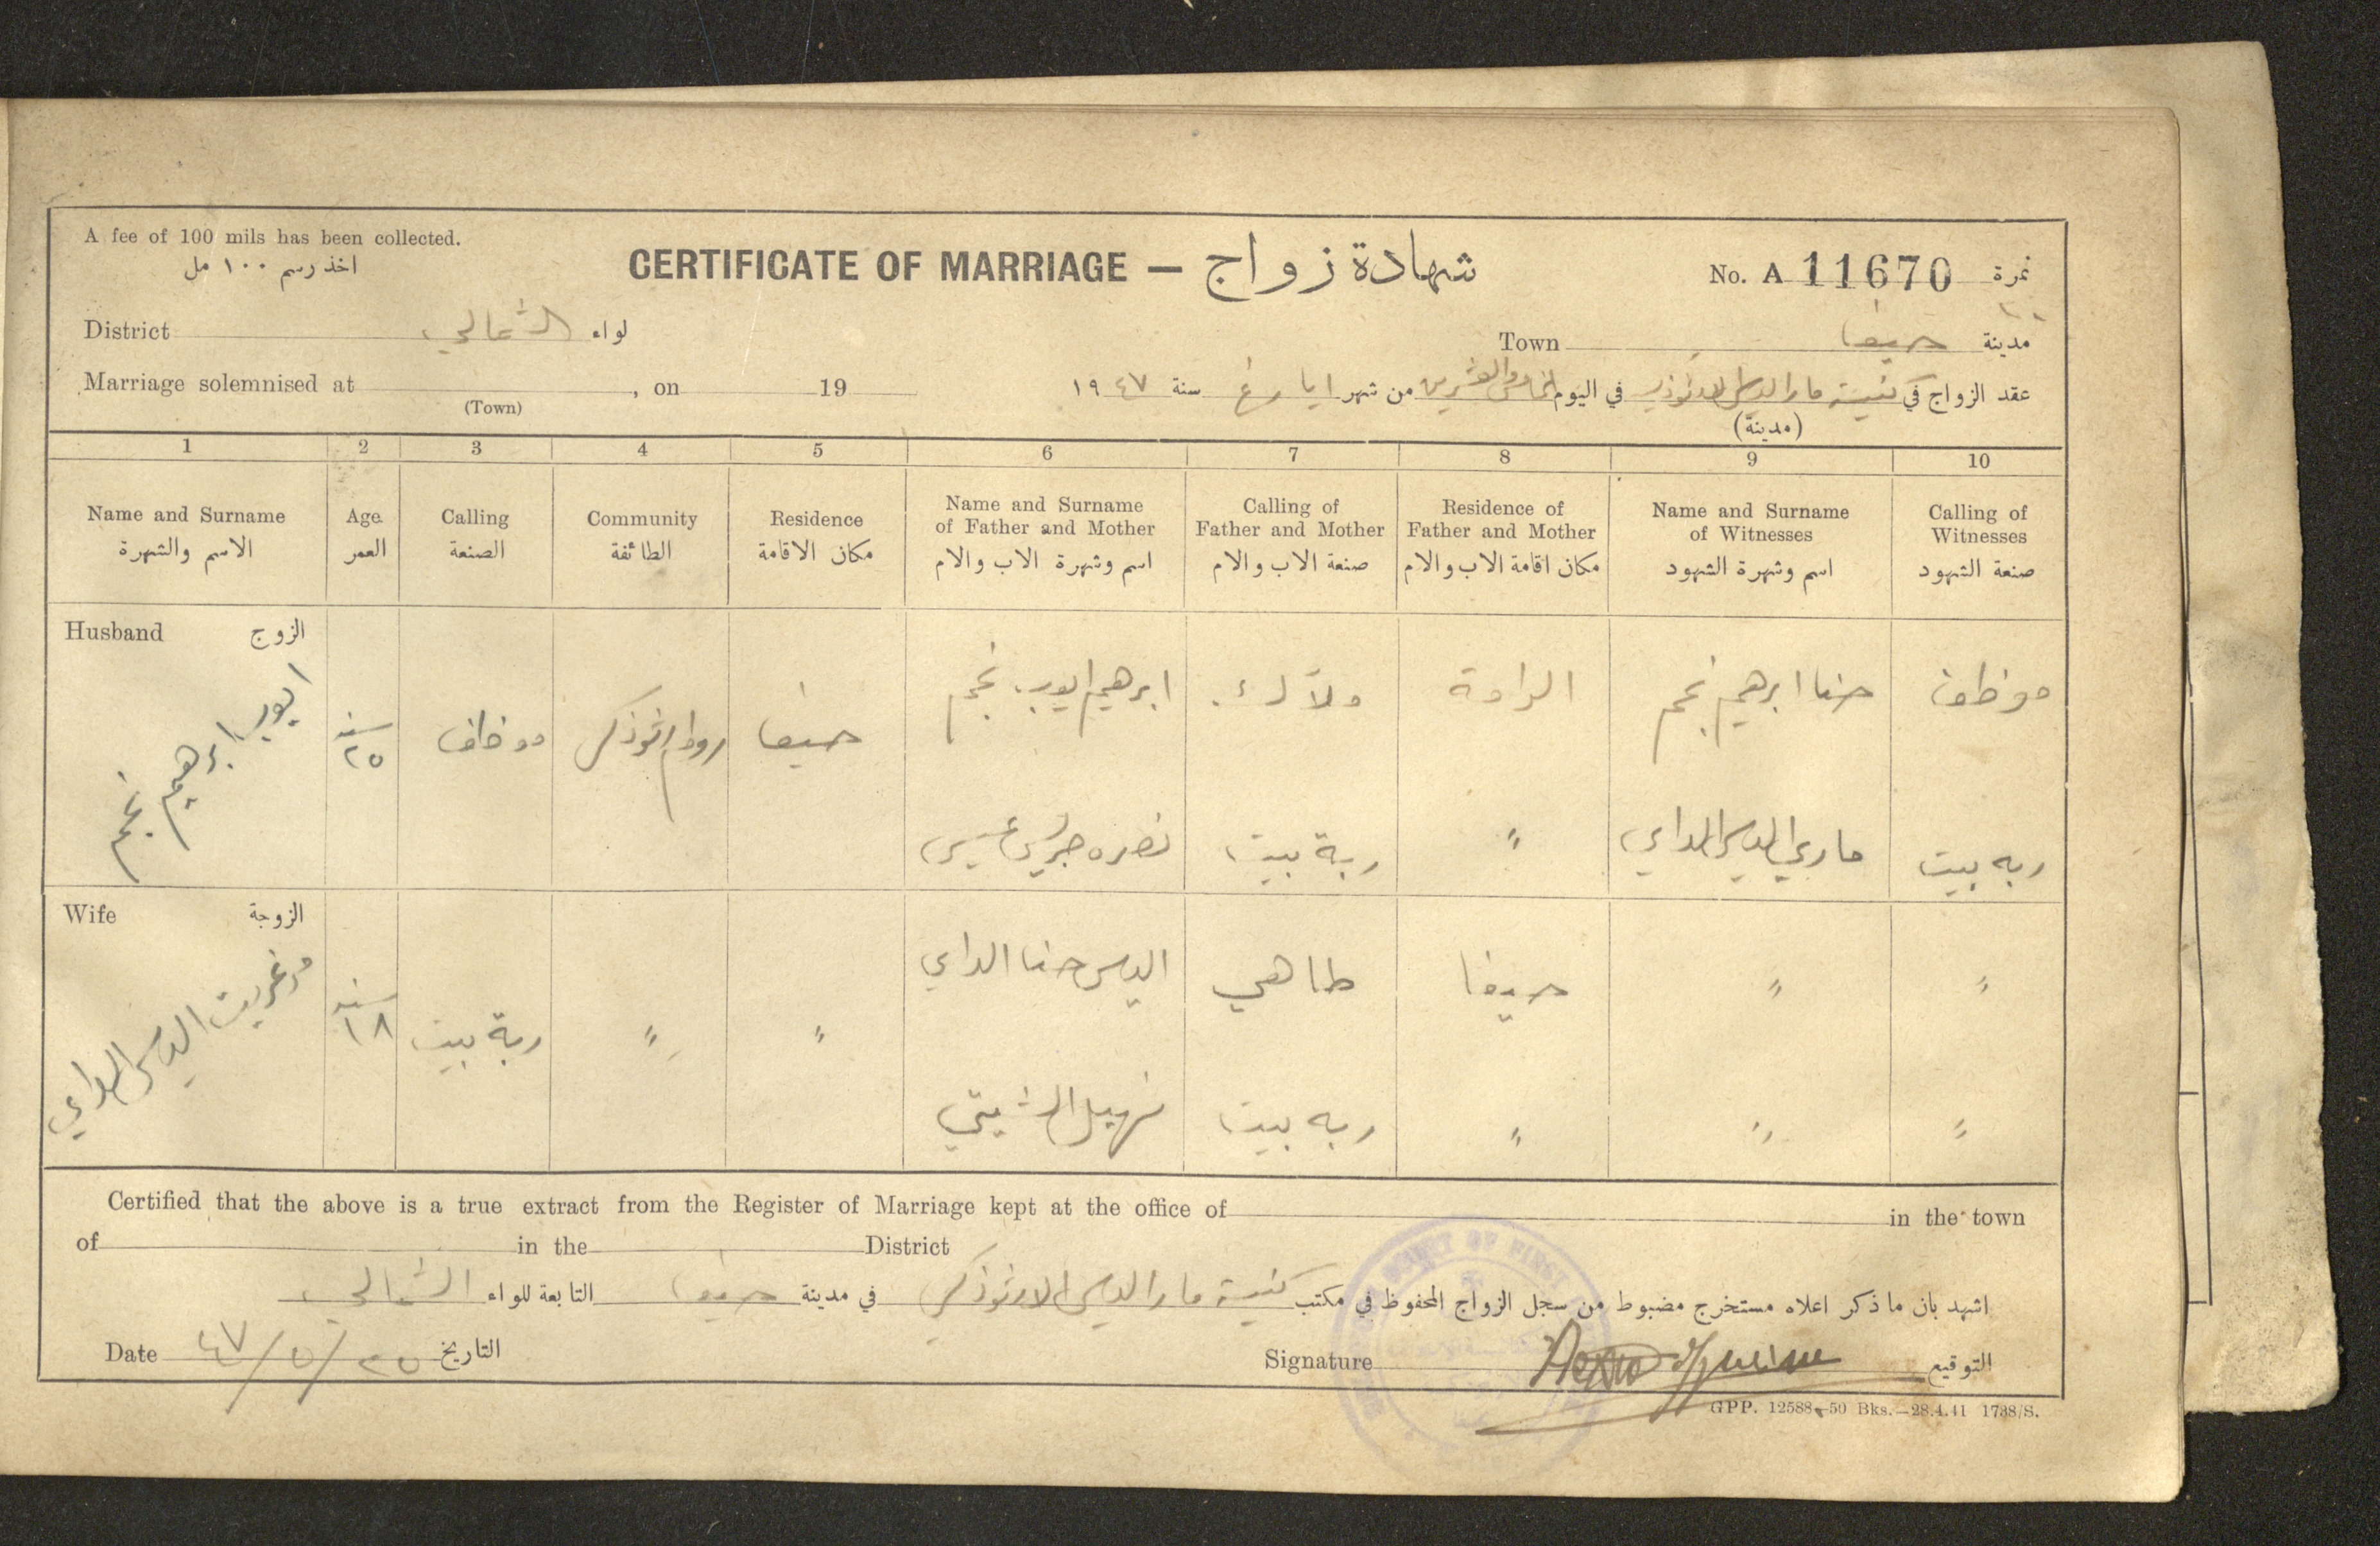 A fee of 100 mils has been collected.
اخذ رسم ١٠٠ مل
CERTIFICATE OF MARRIAGE — شهادة زواج
No. A 11670 نمرة
District الشمالي لواء
Town حيفا مدينة
Marriage solemnised at , on 19
(Town)
عقد الزواج في كنيسة مار الياس في اليوم الخامس والعشرين من شهر ايار سنة ١٩٤٧
(مدينة)
1 2 3 4 5 6 7 8 9 10
Name and Surname الاسم والشهرة
Age العمر
Calling الصنعة
Community الطائفة
Residence مكان الاقامة
Name and Surname of Father and Mother اسم وشهرة الاب والام
Calling of Father and Mother صنعة الاب والام
Residence of Father and Mother مكان اقامة الاب والام
Name and Surname of Witnesses اسم وشهرة الشهود
Calling of Witnesses صنعة الشهود
Husband الزوج
ايوب ابرهيم نجم
سنة ٢٥
موظف
روم ارثوذكس
حيفا
ابرهيم ايوب نجم
ملاك
الرامة
حنا ابرهيم نجم
موظف
نصره جريس
ربة بيت
"
ماري الياس الداي
ربه بيت
Wife الزوجة
مرغريت الياس الداي
سنة ١٨
ربة بيت
"
"
الياس حنا الداي
طاهي
حيفا
"
"
ربه بيت
"
"
"
Certified that the above is a true extract from the Register of Marriage kept at the office of in the town
of in the District
اشهد بان ما ذكر اعلاه مستخرج مضبوط من سجل الزواج المحفوظ في مكتب كنيسة مار الياس الارثوذكس في مدينة حيفا التابعة للواء الشمالي
Date ٢٥/٥/٤٧ التاريخ
Signature التوقيع
GPP. 12588—50 Bks.—28.4.41 1738/S.